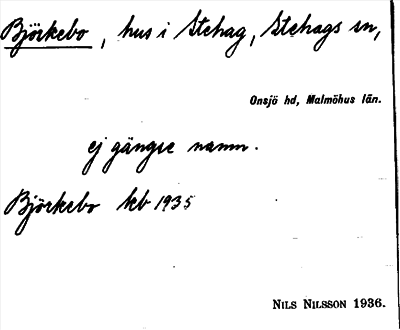 Björkebo, hus i Stehag, Stehags sn,
Onsjö hd, Malmöhus län.
ej gängse namn.
Björkebo kb 1935
NILS NILSSON 1936.